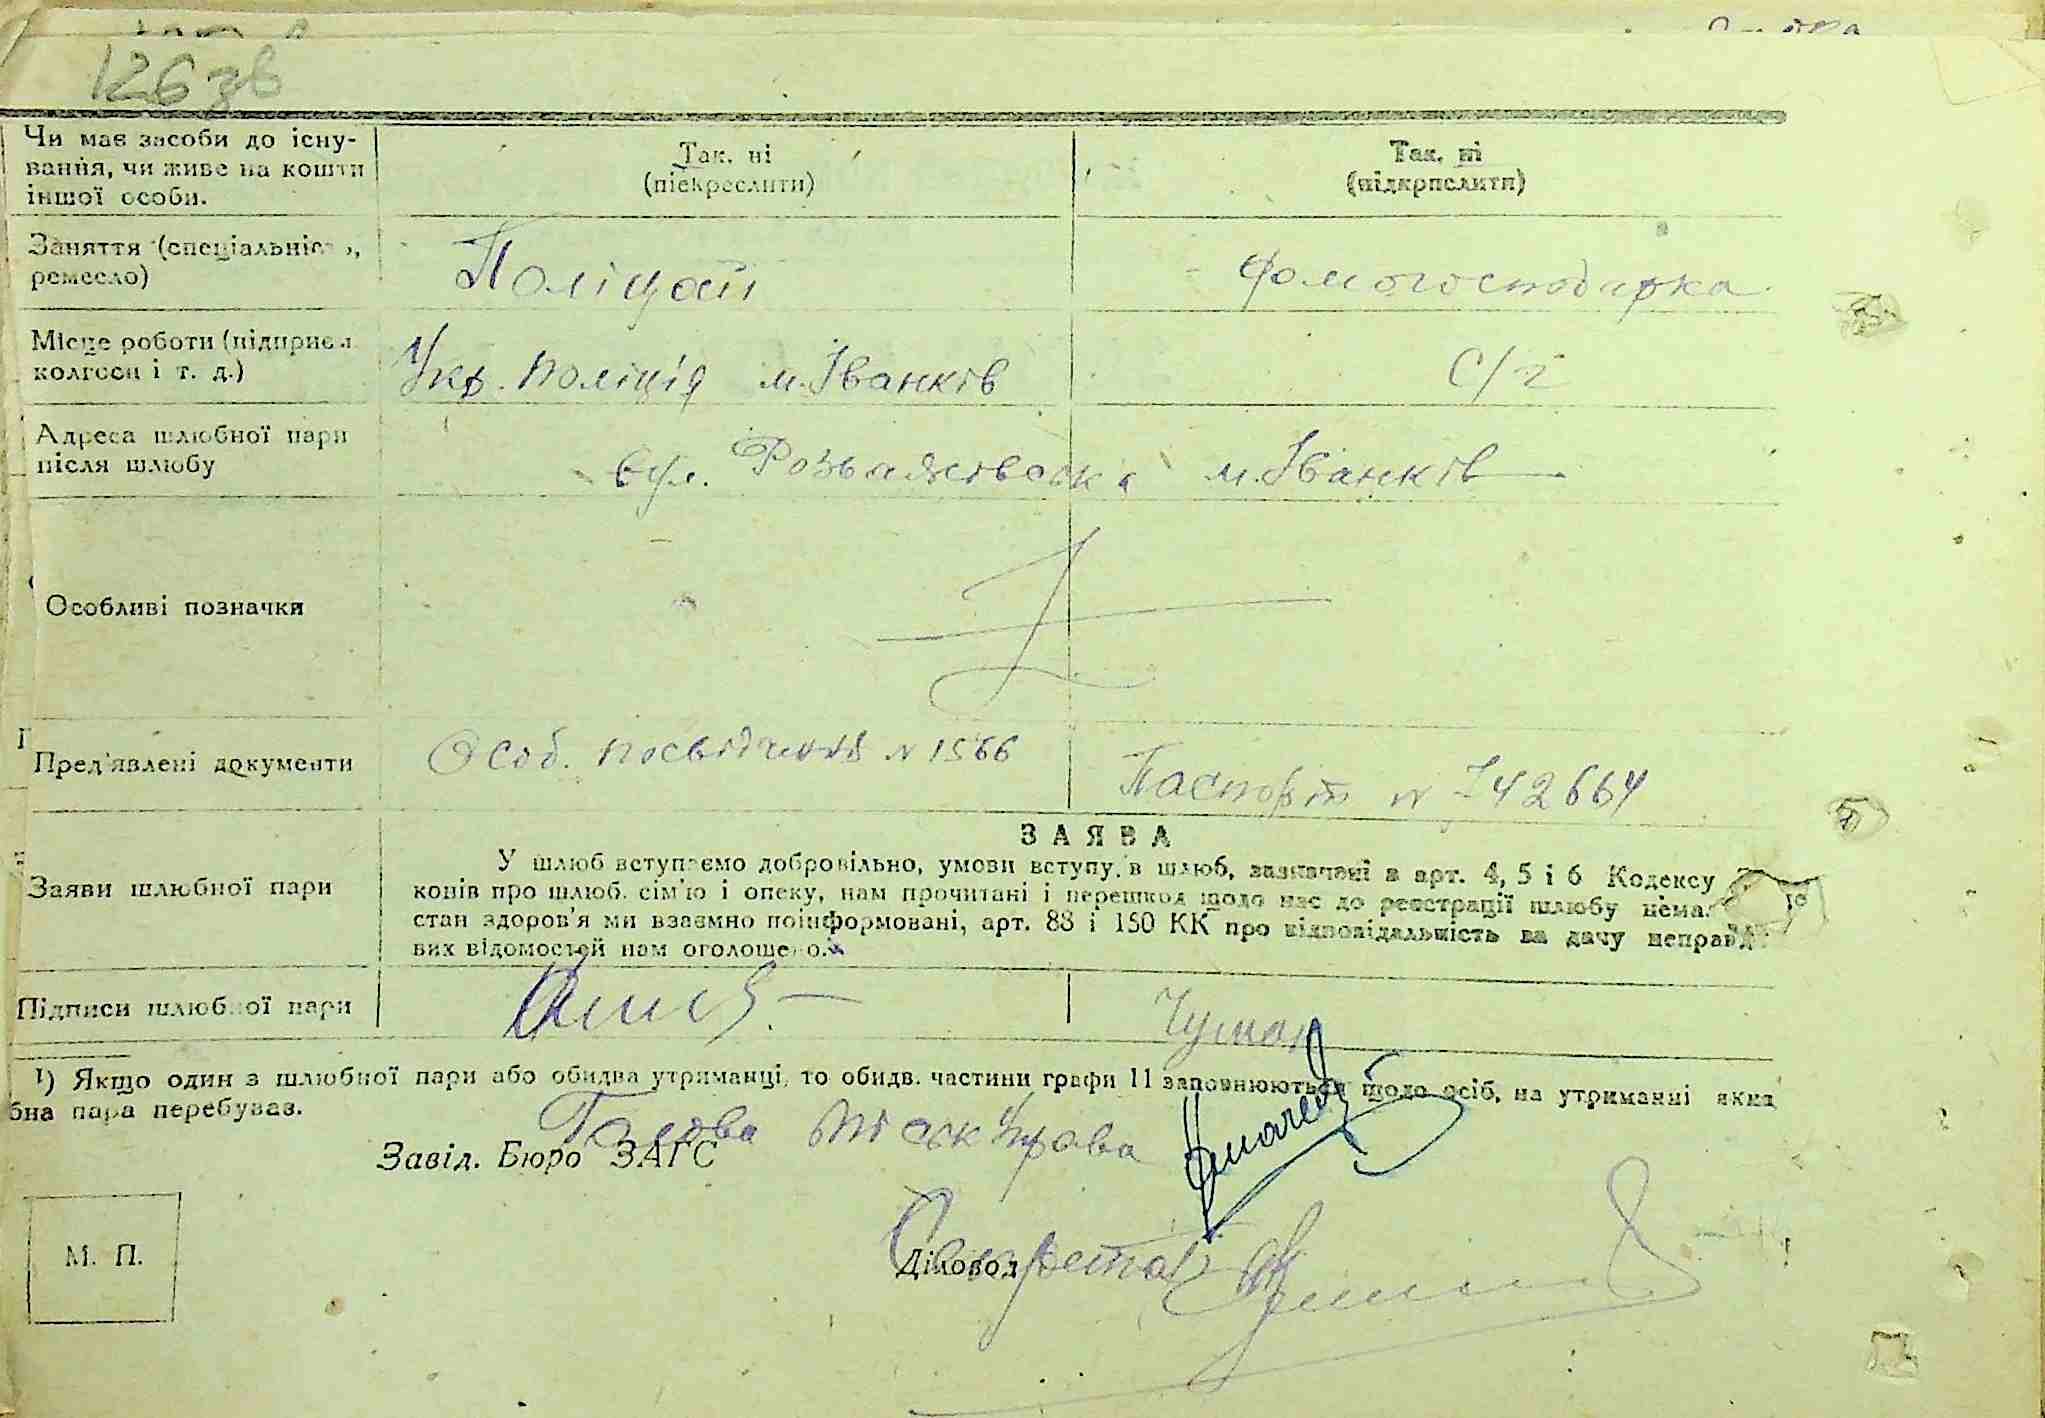 126 зв
Чи має засоби до існу-
вання, чи живе на кошти
іншої особи.
Так. ні
(підкреслити)
Так. ні
(підкрпслити)
Заняття (спеціальність,
ремесло)
Поліцай
Домогосподарка
Місце роботи (підприєм
колгосп і т. д.)
Укр. поліція м. Іванків
С/г
Адреса шлюбної пари
після шлюбу
вул. Розважівська м. Іванків
Особливі позначки
Пред'явлені документи
Особ. посвідчення N 1566
Паспорт N 742664
Заяви шлюбної пари
ЗАЯВА
У шлюб вступаємо добровільно, умови вступу в шлюб, зазначені в арт. 4, 5 і 6 Кодексу
конів про шлюб. сім'ю і опеку, нам прочитані і перешкод щодо нас до реєстрації шлюбу нема.
стан здоров'я ми взаємно поінформовані, арт. 88 і 150 КК про відповідальність за дачу неправди
вих відомостей нам оголошено.
Підписи шлюбної пари
Чумак
¹) Якщо один з шлюбної пари або обидва утриманці, то обидв. частини графи 11 заповнюються щодо осіб, на утриманні яких
бна пара перебуває.
Голова міськ управа
Завід. Бюро ЗАГС
Секретар
Діловод
М. П.